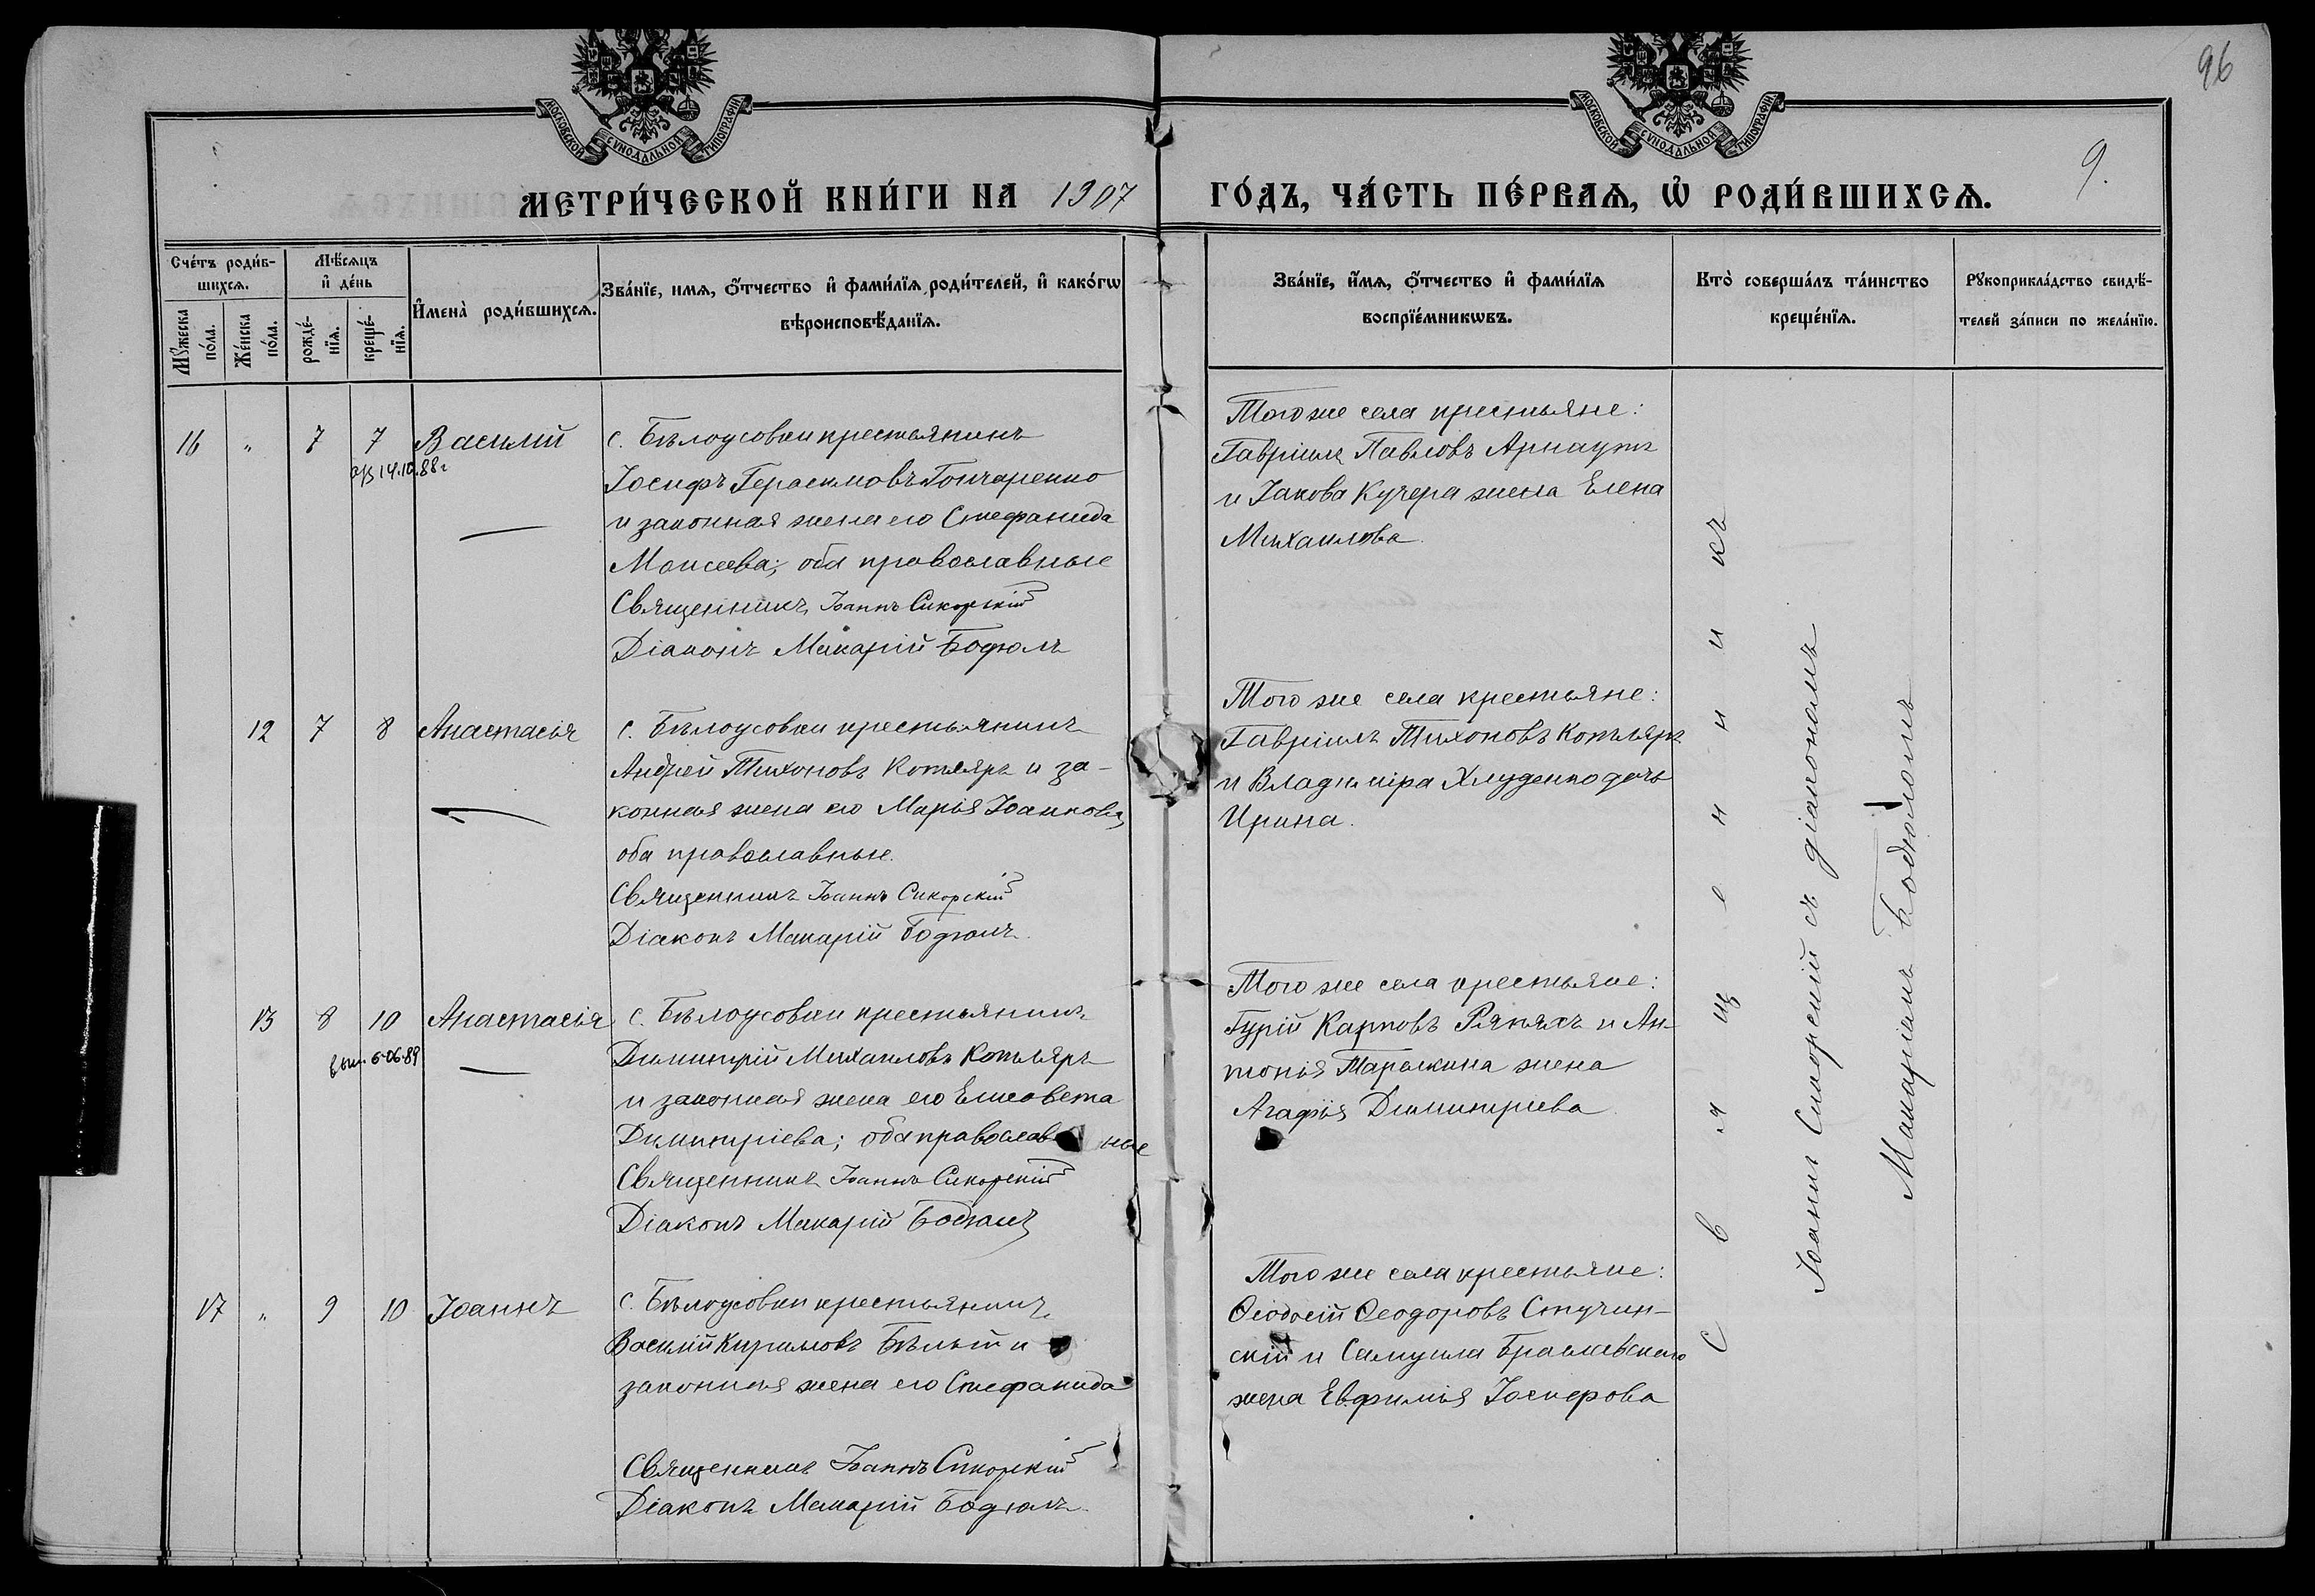 96
9.
МОСКОВСКОЙ СУНОДАЛЬНОЙ ТИПОГРАФІИ
МОСКОВСКОЙ СУНОДАЛЬНОЙ ТИПОГРАФІИ
МЕТРИ́ЧЕСКОЙ КНИ́ГИ НА 1907 ГО́ДЪ, ЧА́СТЬ ПЕ́РВАѦ, Ѡ҆ РОДИ́ВШИХСѦ.
Сче́тъ роди́в-
шихсѧ.
Мꙋ́жеска
по́ла.
Же́нска
по́ла.
Мѣ́сѧцъ
и҆ де́нь
рожде́-
нїѧ.
креще́-
нїѧ.
И҆мена̀ роди́вшихсѧ.
Зва́нїе, имѧ, ѻ҆́тчество и҆ фами́лїѧ роди́телей, и҆ како́гѡ
вѣроисповѣ́данїѧ.
Зва́нїе, и҆́мѧ, ѻ҆́тчество и҆ фами́лїѧ
воспрїе́мникѡвъ.
Кто̀ соверша́лъ та́инство
креще́нїѧ.
Рꙋкоприкла́дство свидѣ́-
телей за́писи по жела́нїю.
16 " 7 7 Василій
14.10.88г
с. Бѣлоусовки крестьянинъ
Іосифъ Герасимовъ Гончаренко
и законная жена его Стефанида
Моисеева; оба православные
Священникъ Іоаннъ Сикорскій
Діаконъ Макарій Бодюлъ
Того же села крестьяне:
Гавріилъ Павловъ Арнаутъ
и Іакова Кучера жена Елена
Михаилова.
12 7 8 Анастасія
с. Бѣлоусовки крестьянинъ
Андрей Тихоновъ Котляръ и за-
конная жена его Марія Іоаннова,
оба православные.
Священникъ Іоаннъ Сикорскій
Діаконъ Макарій Бодюлъ.
Того же села крестьяне:
Гавріилъ Тихоновъ Котляръ
и Владиміра Хлуденко дочь
Ирина.
13 8 10 Анастасія
вып. 6-06-89
с. Бѣлоусовки крестьянинъ
Димитрій Михаиловъ Котляръ
и законная жена его Елисавета
Димитріева; оба православные
Священникъ Іоаннъ Сикорскій
Діаконъ Макарій Бодюлъ
Того же села крестьяне:
Гурій Карповъ и Ан-
тонія жена
Агафія Димитріева
17 " 9 10 Іоаннъ
с. Бѣлоусовки крестьянинъ
Василій Кириловъ Бѣлый и
законная жена его Стефанида
Священникъ Іоаннъ Сикорскій
Діаконъ Макарій Бодюлъ.
Того же села крестьяне:
Ѳеодосій Ѳеодоровъ Стучин-
скій и Самуила Браславскаго
жена Евфимія Іосифова
Священникъ
Іоаннъ Сикорскій съ діакономъ
Макаріемъ Бодюломъ